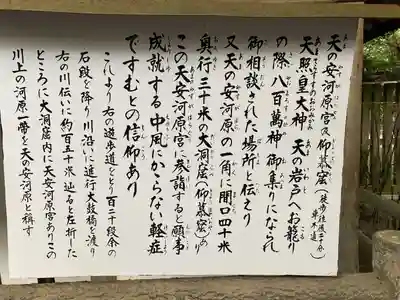 天の安河原宮及仰慕窟
天照皇大神 天の岩戸へお籠り
の際 八百萬神 御集りになられ
御相談された場所と伝えり
又天の安河原の一角に間口四十米
奥行三十米の大洞窟(仰慕窟)あり
この天安河原宮に参詣すると願事
成就する 中風にかゝらない軽症
ですむとの信仰あり
これより右の遊歩道をとり百二十段余の
石段を降り川沿いに進行大鼓橋を渡り
右の川伝いに約百二十米辿ると左折した
ところに大洞窟内に天安河原宮ありこの
川上の河原一帯を天の安河原と稱す